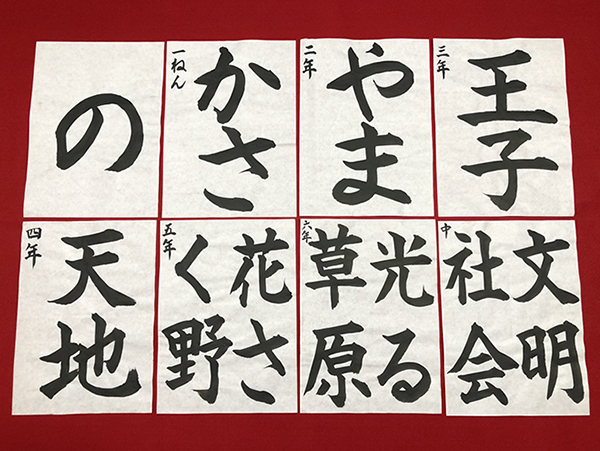 の
一ねん
かさ
二年
やま
三年
王子
四年
天地
五年
花さ
く野
六年
光る
草原
中
文明
社会